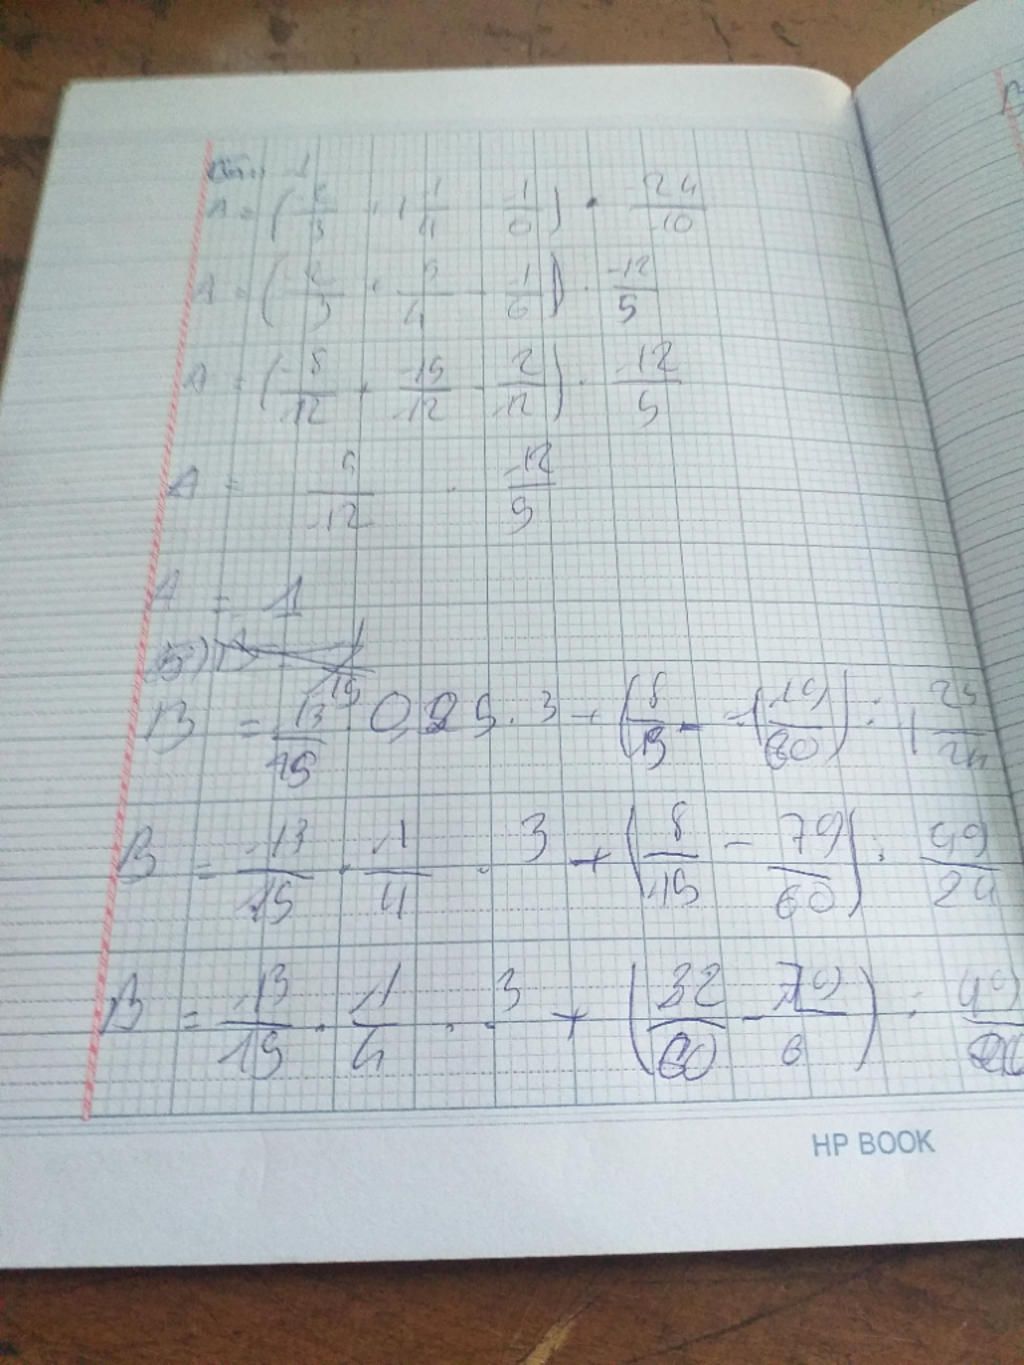 A = ( -2/3 + 1 1/4 - 1/6 ) · -24/10
A = ( -2/3 + 5/4 - 1/6 ) · -12/5
A = ( -8/12 + 15/12 - 2/12 ) · -12/5
A = 5/12 · -12/5
A = 1
B = 13/15 · 0,25 · 3 + ( 8/15 - 1 19/60 ) : 1 25/24
B = 13/15 · 1/4 · 3 + ( 8/15 - 79/60 ) : 49/24
B = 13/15 · 1/4 · 3 + ( 32/60 - 79/6 ) : 49/24
HP BOOK